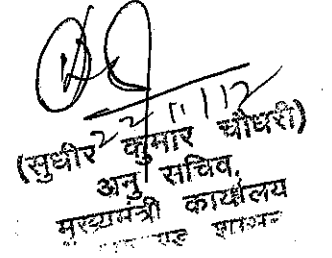 22/11/12
(सुधीर कुमार चौधरी)
अनु सचिव,
मुख्यमंत्री कार्यालय
शासन